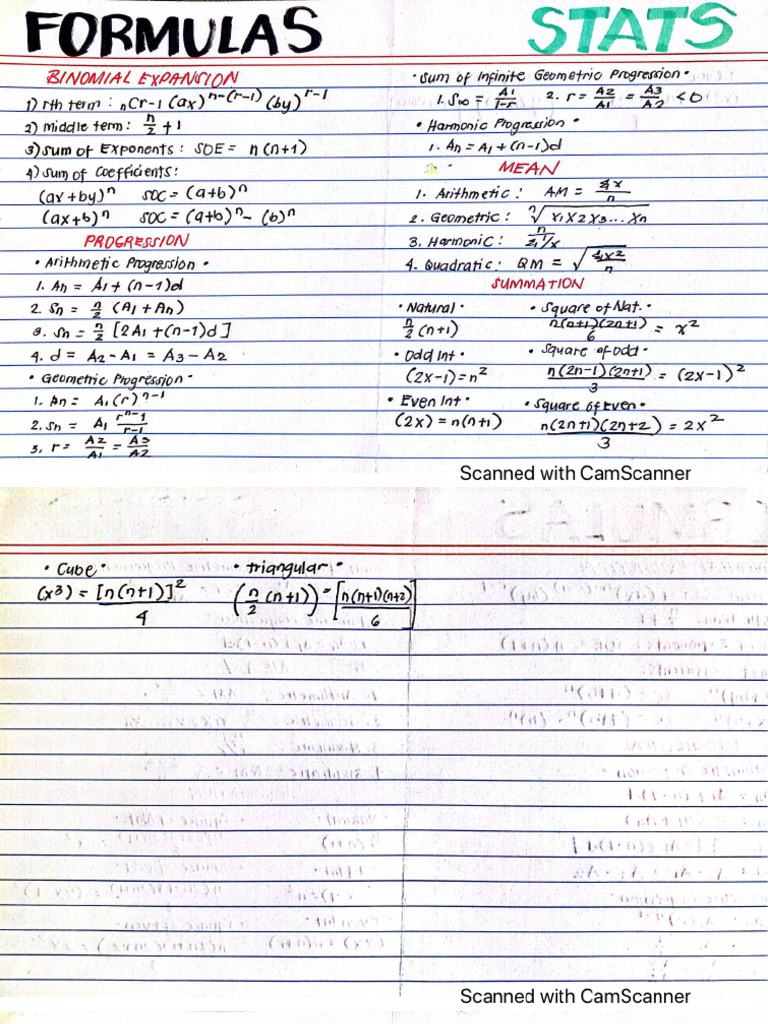 FORMULAS
BINOMIAL EXPANSION
1) rth term : nCr-1 (ax)^n-(r-1) (by)^r-1
2) middle term: n/2 + 1
3) sum of Exponents : SOE = n(n+1)
4) sum of coefficients:
(ax+by)^n SOC = (a+b)^n
(ax+b)^n SOC = (a+b)^n - (b)^n
PROGRESSION
• Arithmetic Progression •
1. An = A1 + (n-1)d
2. Sn = n/2 (A1 + An)
3. Sn = n/2 [2A1 + (n-1)d]
4. d = A2 - A1 = A3 - A2
• Geometric Progression •
1. An = A1(r)^n-1
2. Sn = A1 r^n-1/r-1
3. r = A2/A1 = A3/A2
STATS
• Sum of Infinite Geometric Progression •
1. S∞ = A1/1-r 2. r = A2/A1 = A3/A2 < 0
• Harmonic Progression •
1. An = A1 + (n-1)d
MEAN
1. Arithmetic : AM = Σx/n
2. Geometric : ⁿ√x1x2x3...xn
3. Harmonic : n/Σ1/x
4. Quadratic : QM = √Σx2/n
SUMMATION
• Natural •
n/2 (n+1)
• Odd Int •
(2x-1) = n^2
• Even Int •
(2x) = n(n+1)
• Square of Nat. •
n(n+1)(2n+1)/6 = x^2
• Square of Odd •
n(2n-1)(2n+1)/3 = (2x-1)^2
• Square of Even •
n(2n+1)(2n+2)/3 = 2x^2
Scanned with CamScanner
• Cube •
(x^3) = [n(n+1)]^2/4
• triangular •
(n/2 (n+1)) = [n(n+1)(n+2)/6]
Scanned with CamScanner